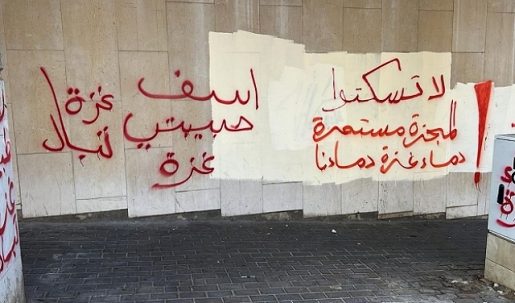 لا تسكتوا
المجزرة مستمرة
دماء غزة دماءنا
اسف
حبيبتي
غزة
غزة
تباد